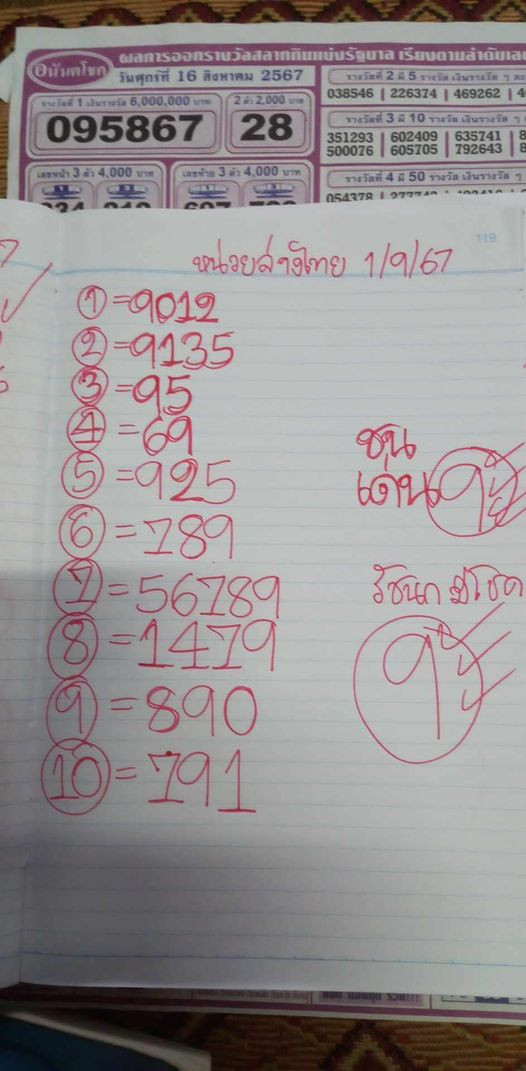 อนันตโชค
ผลการออกรางวัลสลากกินแบ่งรัฐบาล เรียงตามลำดับเลข
วันศุกร์ที่ 16 สิงหาคม 2567
รางวัลที่ 1 เงินรางวัล 6,000,000 บาท
2 ตัว 2,000 บาท
095867
28
เลขหน้า 3 ตัว 4,000 บาท
เลขท้าย 3 ตัว 4,000 บาท
รางวัลที่ 2 มี 5 รางวัล เงินรางวัล ๆ ละ
038546 | 226374 | 469262 | 4
รางวัลที่ 3 มี 10 รางวัล เงินรางวัล ๆ
351293 | 602409 | 635741 | 8
500076 | 605705 | 792643 | 8
รางวัลที่ 4 มี 50 รางวัล เงินรางวัล ๆ
054378
119
หน่วยล่างไทย 1/9/67
① =9012
② =9135
③ =95
④ =69
⑤ =925
⑥ =789
⑦ =56789
⑧ =1479
⑨ =890
⑩ =791
ชน
เด่น 9
มีโชค
9